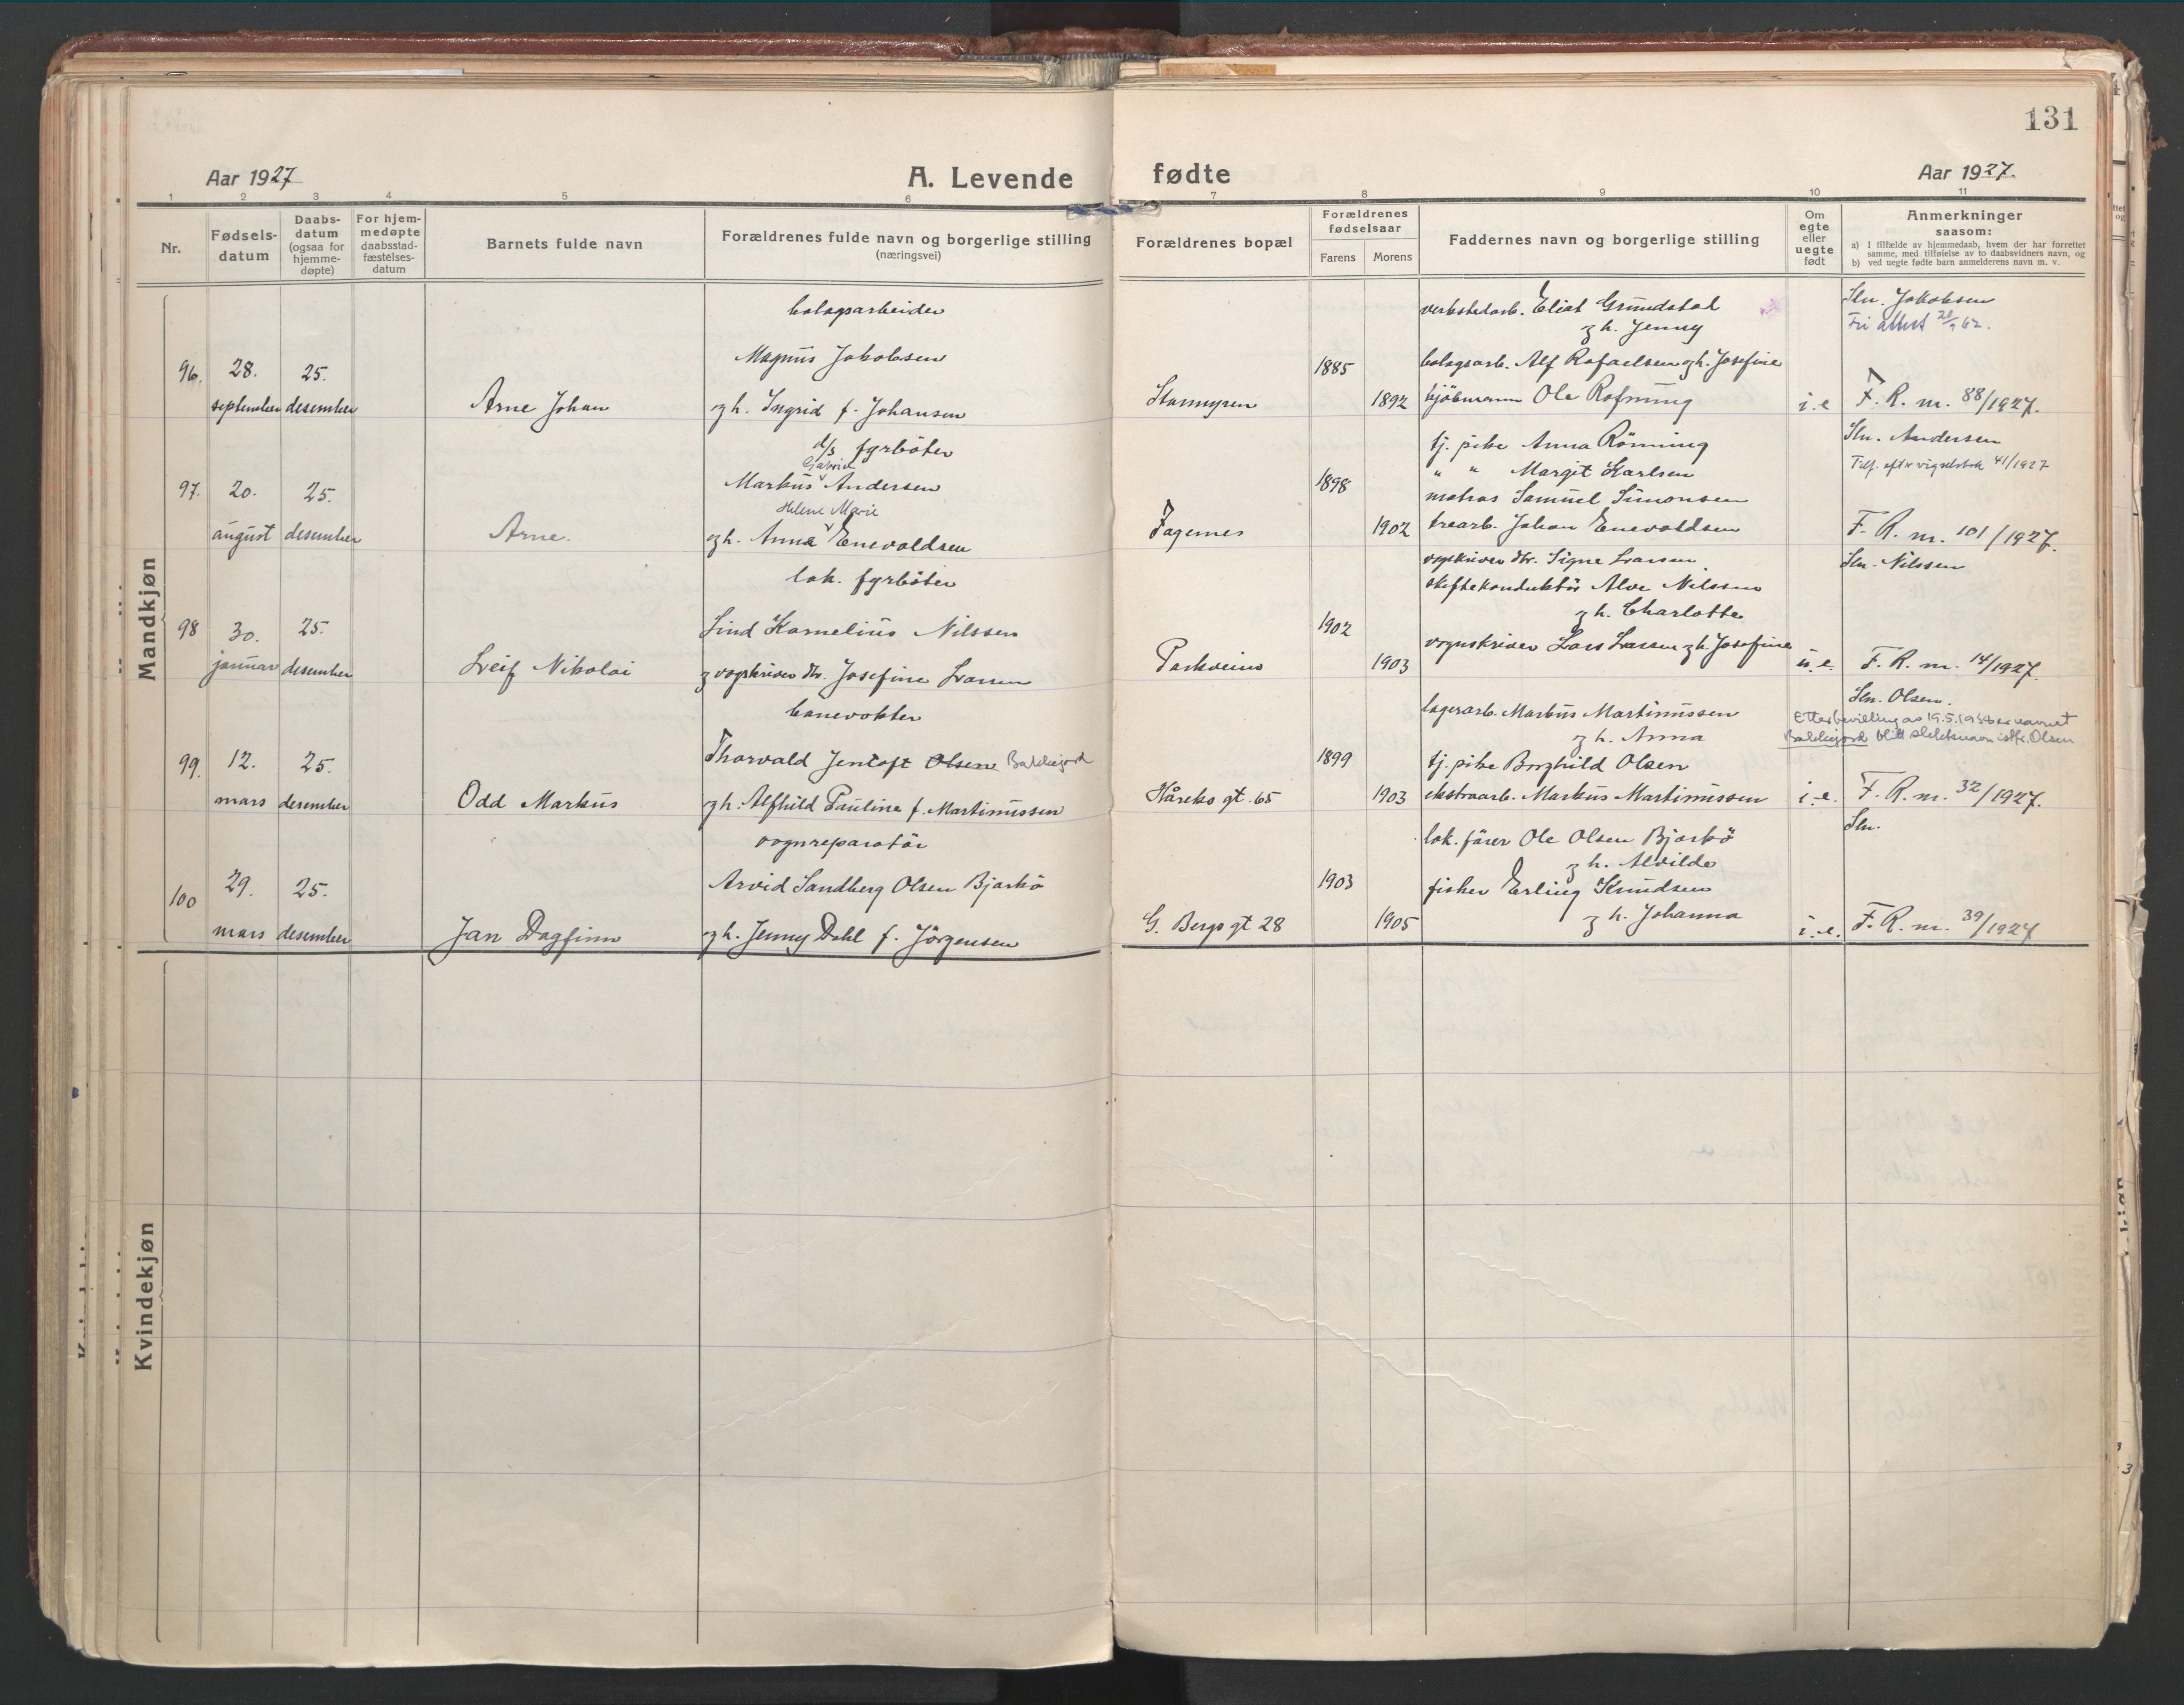 131
Aar 1927
A. Levende fødte
Aar 1927.
1 2 3 4 5 6 7 8 9 10 11
Nr.
Fødsels-
datum
Daabs-
datum
(ogsaa for
hjemme-
døpte)
For hjem-
medøpte
daabsstad-
fæstelses-
datum
Barnets fulde navn
Forældrenes fulde navn og borgerlige stilling
(næringsvei)
Forældrenes bopæl
Forældrenes
fødselsaar
Farens Morens
Faddernes navn og borgerlige stilling
Om
egte
eller
uegte
født
Anmerkninger
saasom:
a) I tilfælde av hjemmedaab, hvem der har forrettet
samme, med tilføielse av to daabsvidners navn, og
b) ved uegte fødte barn anmelderens navn m. v.
Mandkjøn
96.
28.
september
25.
desember
Arne Johan
bolagsarbeider
Magnus Jakobsen
og h. Ingrid f. Johansen
1885
1892
verkstedarb. Eliot Grundstad
og h. Jenny
bolagsarb. Alf Rafaelsen og h. Josefine
kjöbmann Ole
i. e
Sln. Jakobsen
Fri attest
F. R. nr. 88/1927.
97.
20.
august
25.
desember
Arne.
d/s fyrböter
Gabriel
Markus Andersen
Helene Marie
og h. Anna Enevoldsen
Fagernes
1898
1902
tj. pike Anna Rönning
" " Margit Karlsen
matros Samuel Simonsen
trearb. Johan Enevoldsen
Sln. Andersen
Tilf. eft. vigselsbok 41/1927
F. R. nr. 101/1927.
98
30.
januar
25.
desember
Leif Nikolai
lok. fyrböter
Lind Kornelius Nilssen
og vognskriver dtr. Josefine Larsen
Parkveien
1902
1903
vognskriver dtr. Signe Larsen
skiftekonduktör Alve Nilssen
og h. Charlotte
vognskriver Lars Larsen og h. Josefine
u. e.
Sln. Nilssen
F. R. nr. 14/1927.
99.
12.
mars
25.
desember
Odd Markus
banevokter
Thorvald Jentoft Olsen Bakkejord
og h. Alfhild Pauline f. Martinussen
Håreks gt. 65
1899
1903
lagerarb. Markus Martinussen
og h. Anna
tj. pike Borghild Olsen
ekstraarb. Markus Martinussen
i. e.
Sln. Olsen.
Etter bevilling av 19.5.1938 er navnet
Bakkejord blitt slektsnavn istf. Olsen
F. R. nr. 32/1927.
100
29.
mars
25.
desember
Jan Dagfinn
vognreparatör
Arvid Sandberg Olsen Bjarkö
og h. Jenny Dahl f. Jörgensen
G. Bergs gt 28
1903
1905
lok. förer Ole Olsen Bjarkö
og h. Alvilde
fisker Erling Knudsen
og h. Johanna
i. e.
Sln.
F. R. nr. 39/1927
Kvindekjøn